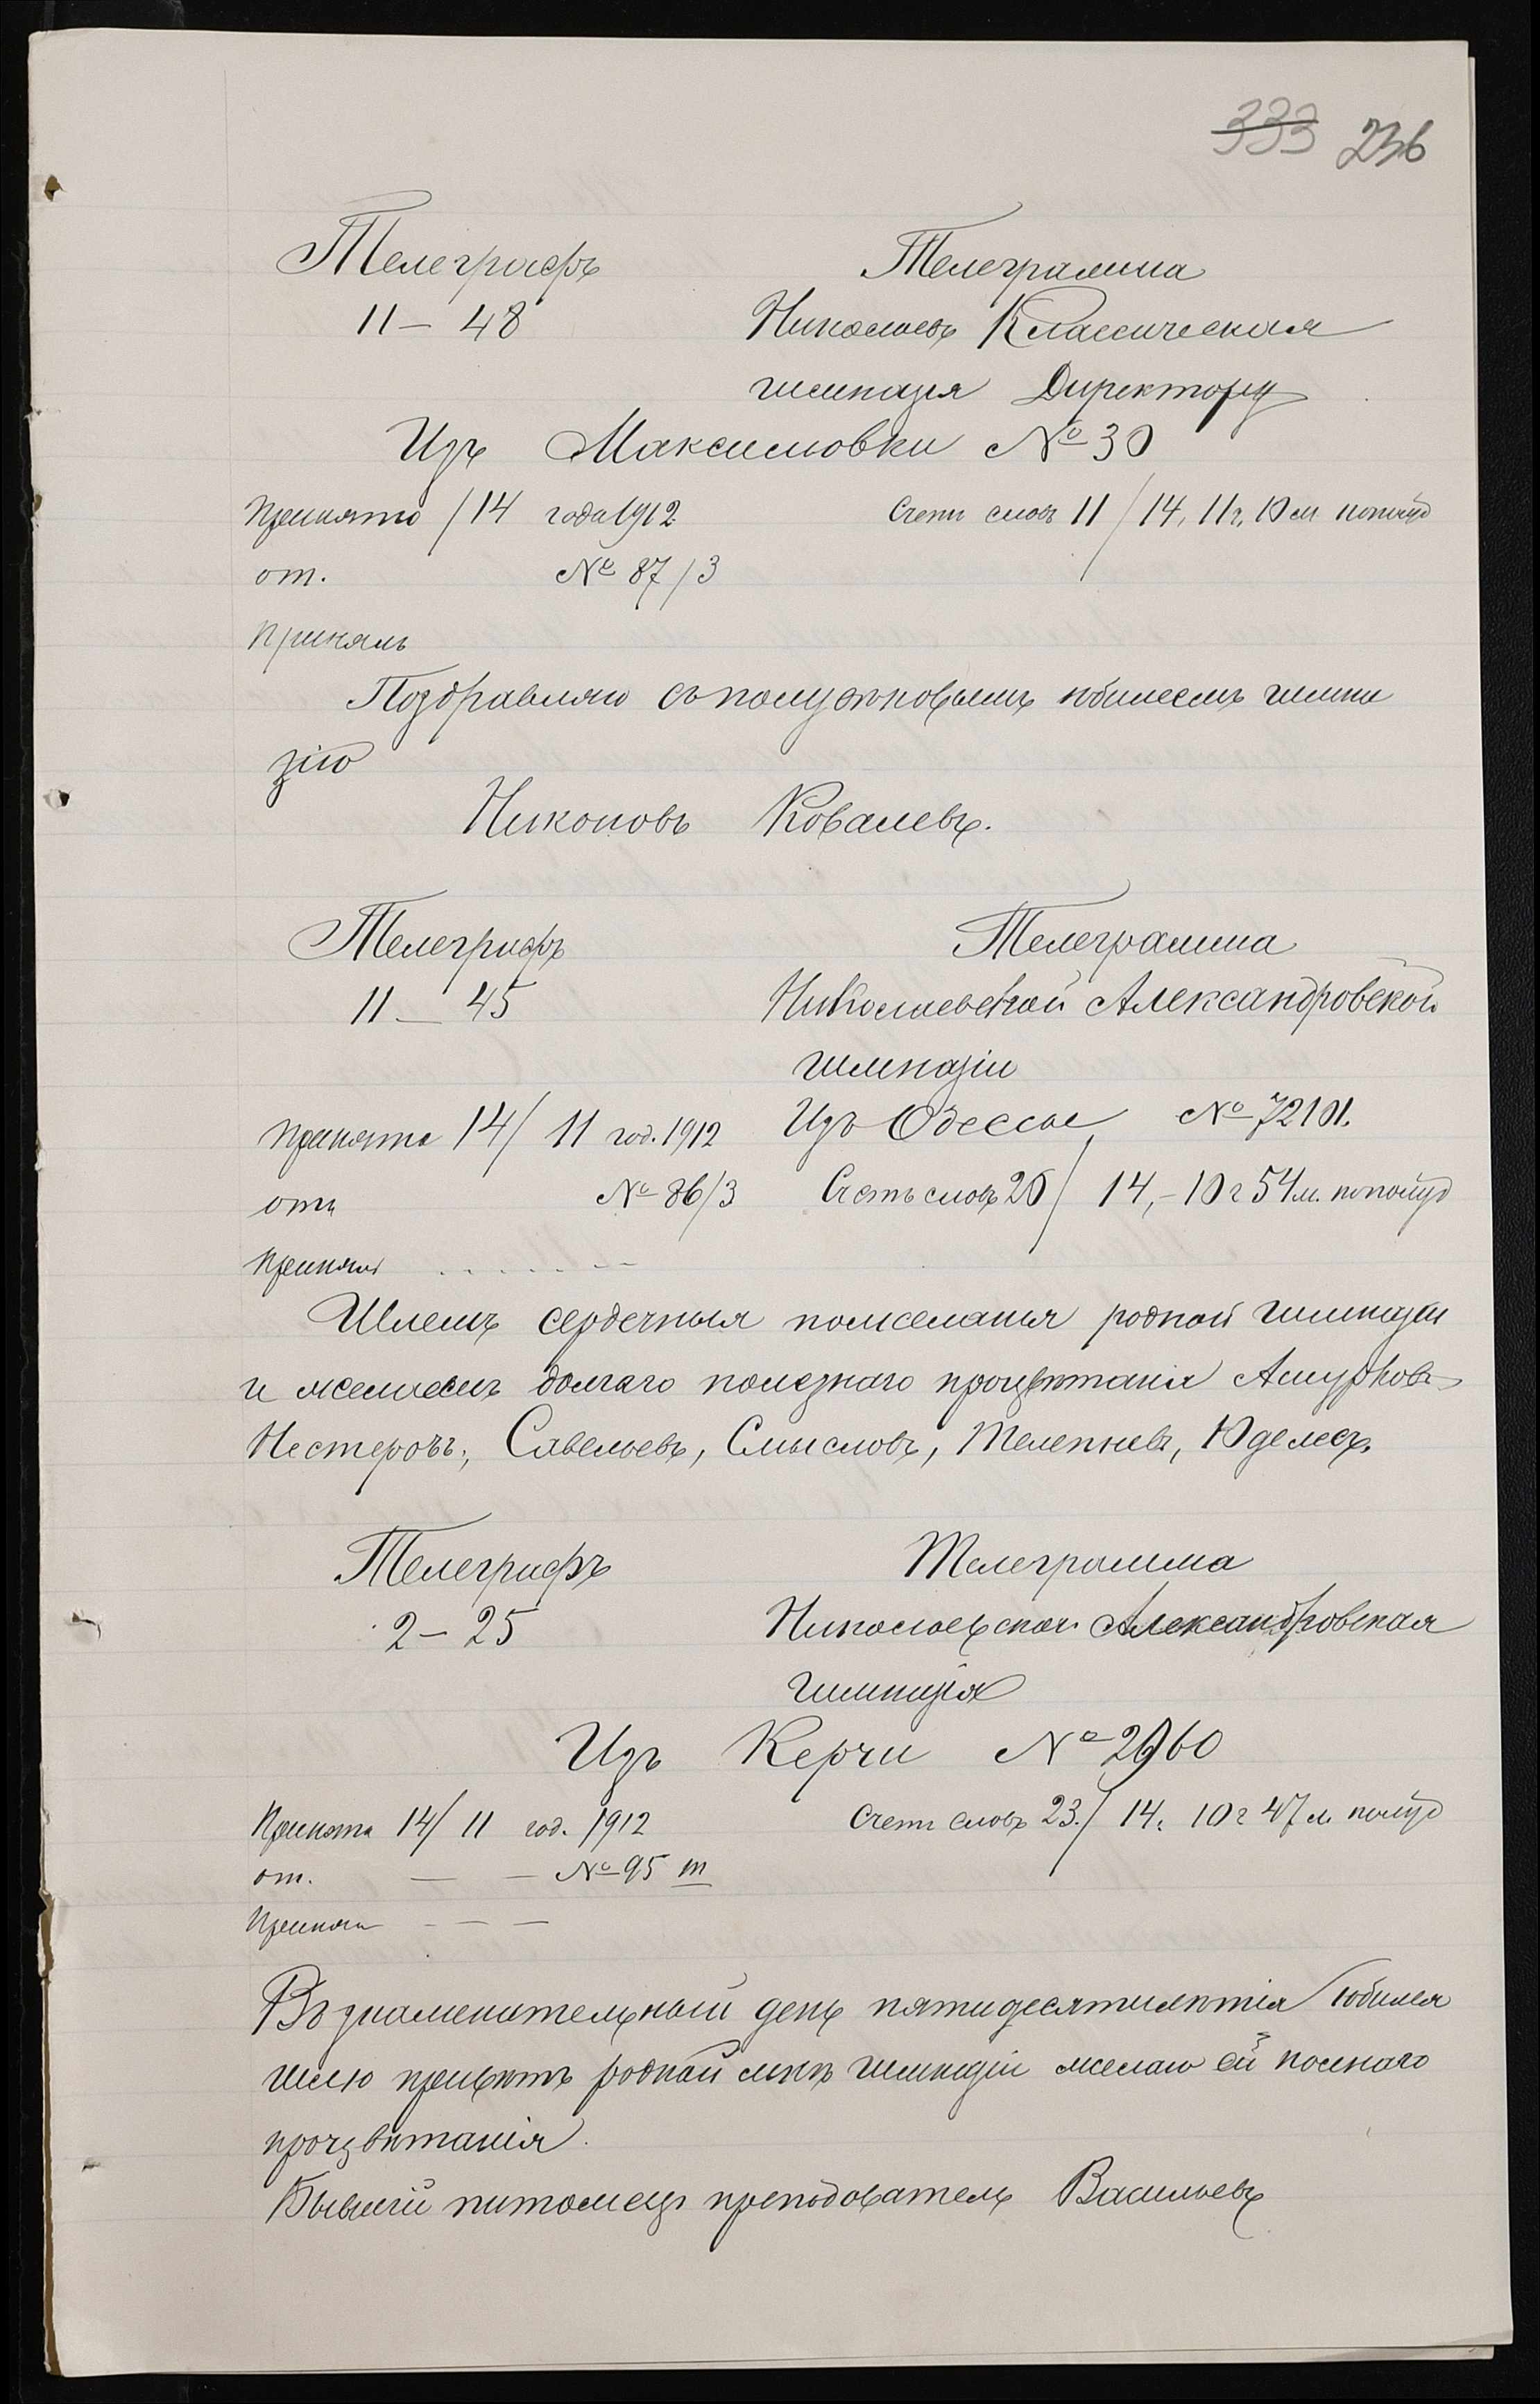 333 236
Телеграфъ Телеграмма
11 – 48 Николаевъ Классическая
гимназія Директору
Изъ Максимовки № 30
Принято /14 года 1912 Счетъ словъ 11 / 14, 11 ч, 10 м пополуд
от. № 87/3
Принялъ
Поздравляю съ полувѣковымъ юбилеемъ гимна
зію
Никоновъ Ковалевъ.
Телеграфъ Телеграмма
11 – 45 Николаевской Александровской
гимназіи
Принята 14/ 11 год. 1912 Изъ Одессы № 72101.
отъ № 86/3 Счетъ словъ 20 / 14, – 10 ч 54 м. пополуд
Принялъ . . . . . . –
Шлемъ сердечныя пожеланія родной гимназіи
и желаемъ долгаго полезнаго процвѣтанія
Нестеровъ, Савельевъ, Смысловъ, Телепневъ, Юделесъ.
Телеграфъ Телеграмма
2 – 25 Николаевская Александровская
гимназія
Изъ Керчи № 2960
Принята 14/ 11 год. 1912 Счетъ словъ 23. / 14, 10 ч 47 м. полуд
от. — — № 95 т
Принялъ – — —
Въ знаменательный день пятидесятилѣтія юбилея
шлю привѣтъ родной мнѣ гимназіи желаю ей полнаго
процвѣтанія.
Бывшій питомецъ преподователь Васильевъ